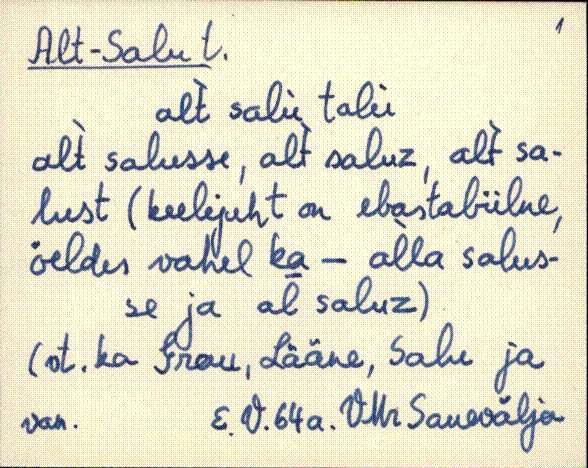 1
Alt-Salu t.
alt̀ salu talu
alt̀ salusse, alt̀ saluz, alt̀ sa-
lust (keelejuht on ebastabiilne,
öeldes vahel ka – al̀la salus-
se ja al saluz)
(vt. ka Prou, Lääne, Salu ja
van. E.V. 64a. VMr Sauevälja